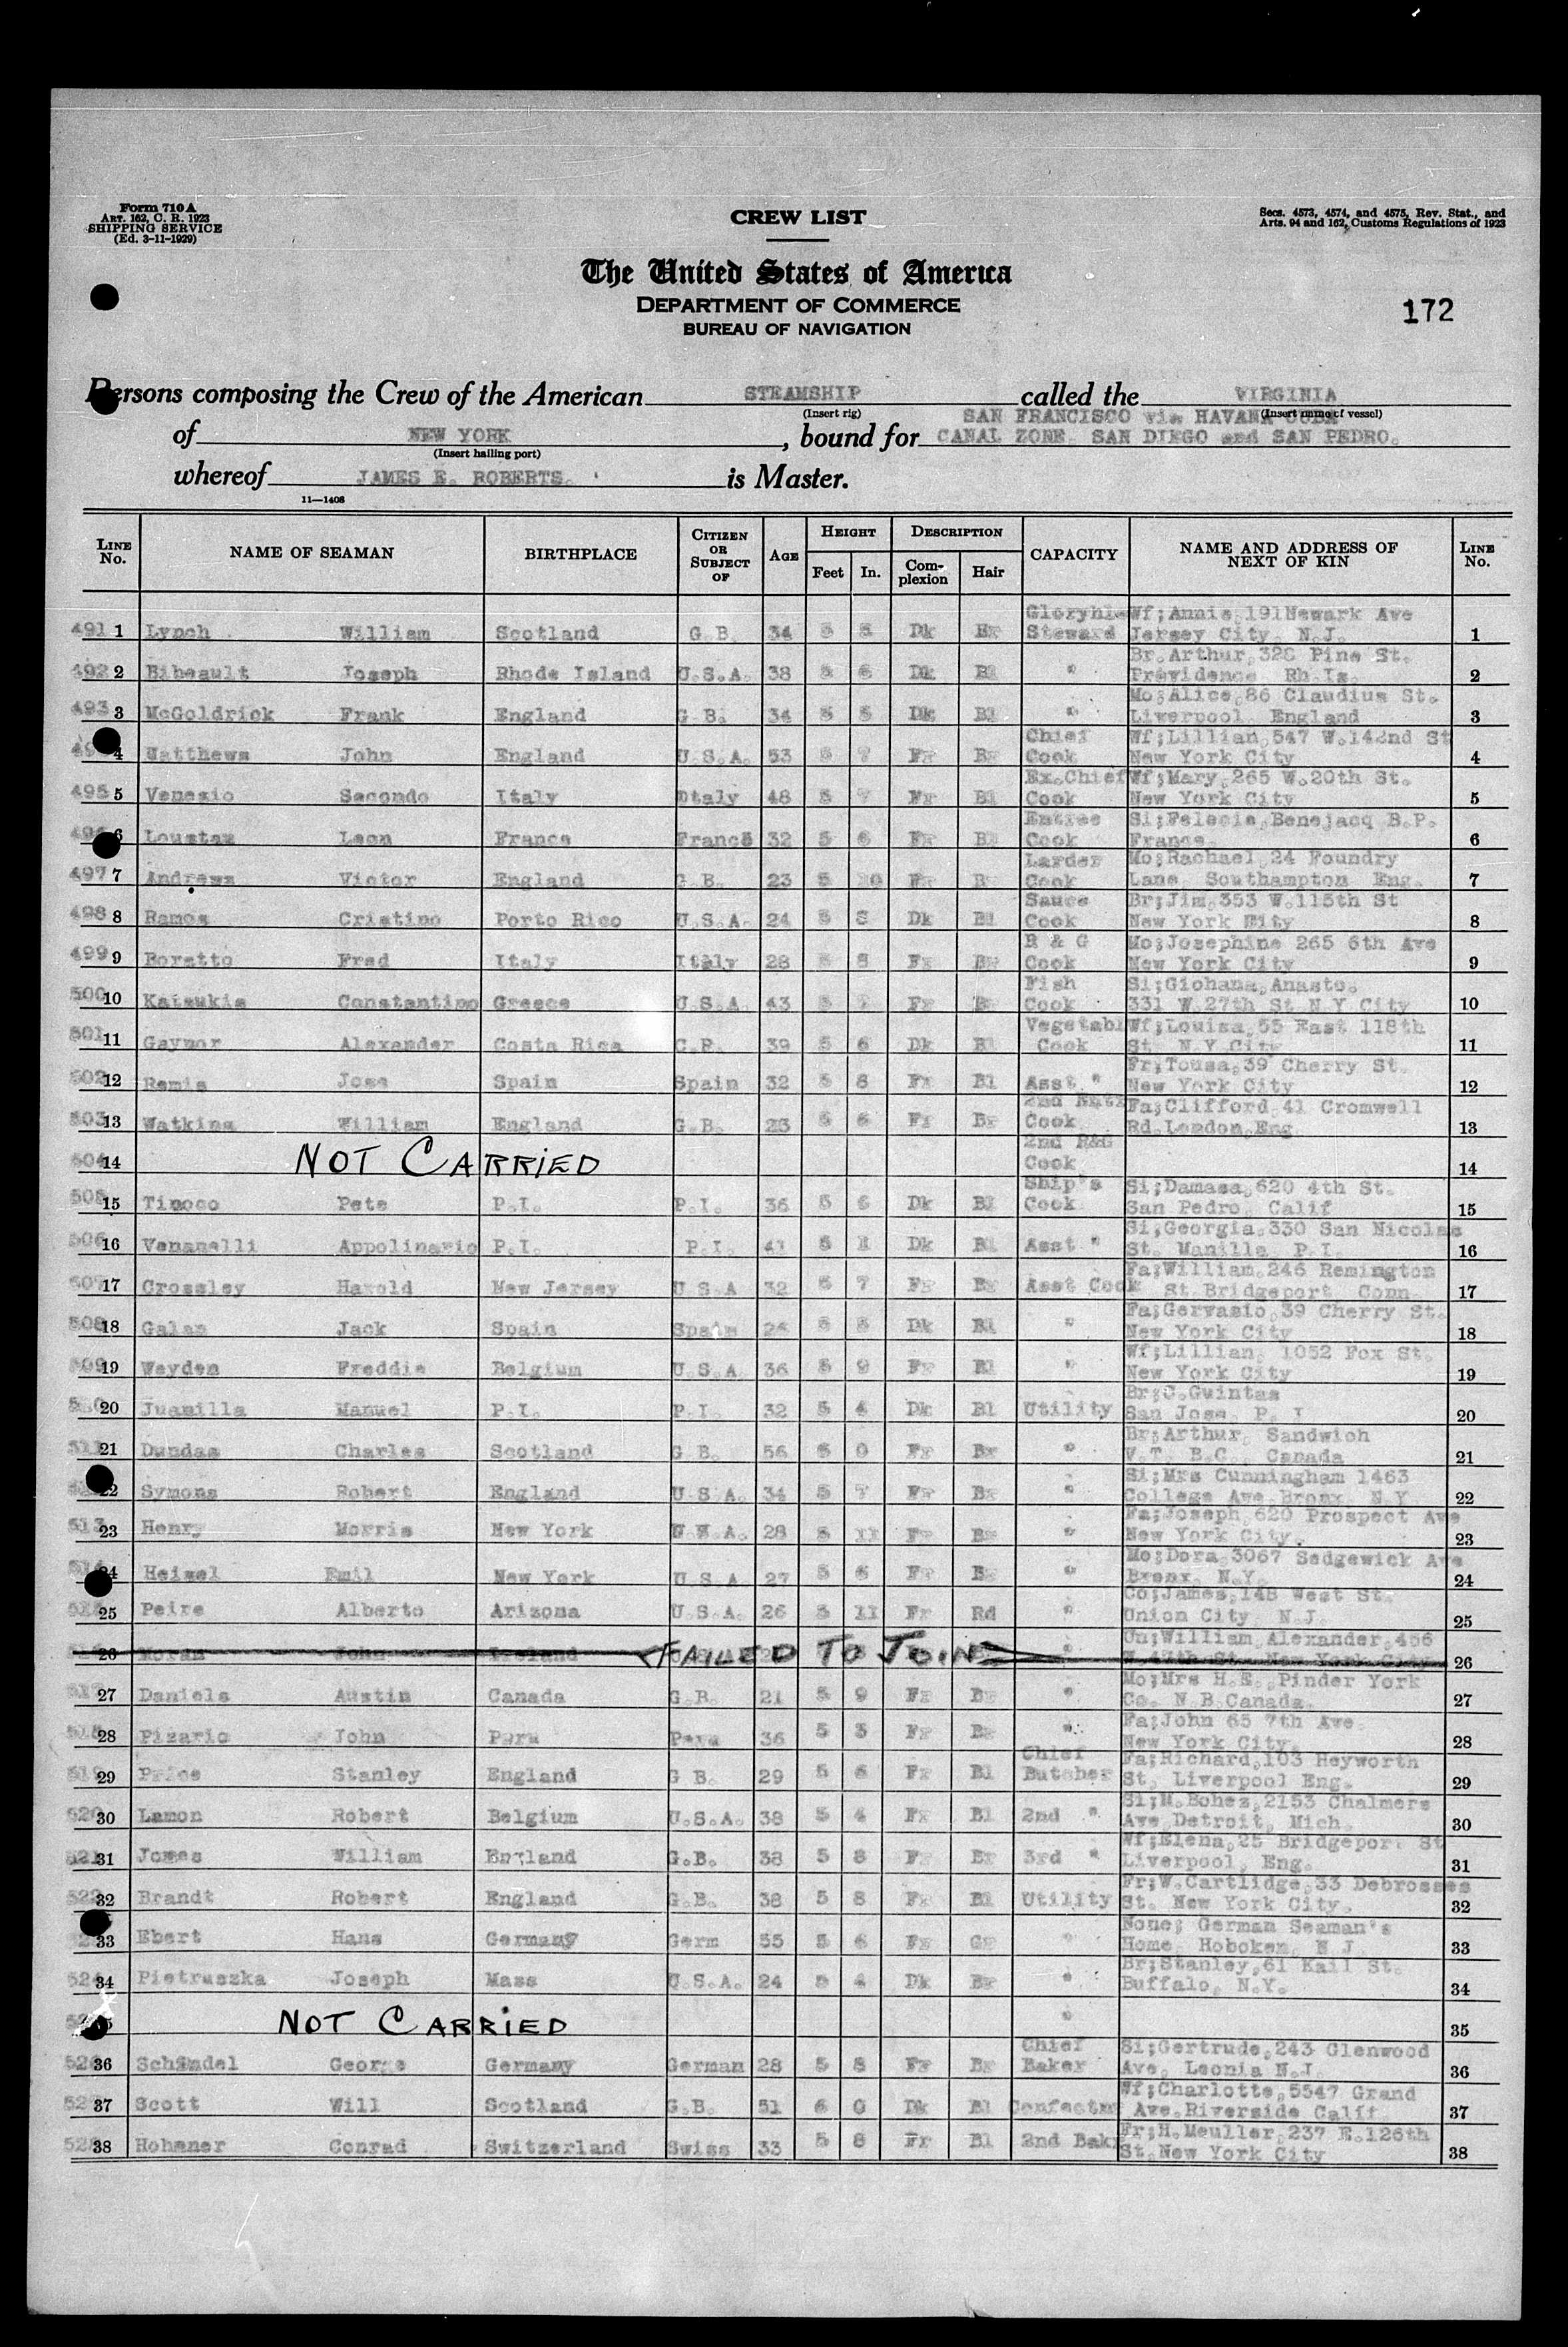 Form 710 A
ART. 162, C. R. 1923
SHIPPING SERVICE
(Ed. 3-11-1929)
CREW LIST
Secs. 4573, 4574, and 4575, Rev. Stat., and
Arts. 94 and 162, Customs Regulations of 1923
The United States of America
DEPARTMENT OF COMMERCE
BUREAU OF NAVIGATION
172
Persons composing the Crew of the American STEAMSHIP called the VIRGINIA
(Insert rig) (Insert name of vessel)
SAN FRANCISCO via HAVANA CUBA
of NEW YORK, bound for CANAL ZONE. SAN DIEGO and SAN PEDRO.
(Insert hailing port)
whereof JAMES E. ROBERTS. is Master.
11—1408
LINE No. NAME OF SEAMAN BIRTHPLACE CITIZEN OR SUBJECT OF AGE HEIGHT Feet In. DESCRIPTION Complexion Hair CAPACITY NAME AND ADDRESS OF NEXT OF KIN LINE No.
491 1 Lynch William Scotland G.B. 34 5 5 Dk Steward Wf;Annie,191Newark Ave Jersey City. N.J. 1
492 2 Bibeault Joseph Rhode Island U.S.A. 38 5 6 Dk Bl " Br.Arthur,328 Pine St. Providence Rh.Is. 2
493 3 McGoldrick Frank England G.B. 34 5 5 Dk Bl " Mo;Alice,86 Claudius St. Liverpool England 3
4 Matthews John England U.S.A. 53 5 7 Fr Br Chief Cook Wf;Lillian,547 W.142nd St New York City 4
495 5 Venesio Secondo Italy Italy 48 5 7 Fr Bl Ex.Chief Cook Wf;Mary,265 W.20th St. New York City 5
6 Loustau Leon France France 32 5 6 Fr Bl Entree Cook Si;Felecie,Benejacq B.P. France. 6
497 7 Andrews Victor England G.B. 23 5 10 Fr Br Larder Cook Mo;Rachael,24 Foundry Lane Southampton Eng. 7
498 8 Ramos Cristino Porto Rico U.S.A. 24 5 Dk Bl Sauce Cook Br;Jim,353 W.115th St New York City 8
499 9 Boratto Fred Italy Italy 28 5 8 Fr Br R & G Cook Mo;Josephine 265 6th Ave New York City 9
500 10 Katsukis Constantino Greece U.S.A. 43 5 7 Fr Br Fish Cook Si;Giohana,Anasto. 331 W.27th St N.Y City 10
501 11 Gaynor Alexander Costa Rica C.R. 39 5 6 Dk Bl Vegetabl Cook Wf;Louisa,55 East 118th St. N.Y.City 11
502 12 Remis Jose Spain Spain 32 5 8 Fr Bl Asst " Fr;Tousa,39 Cherry St. New York City 12
503 13 Watkins William England G.B. 5 6 Fr Br 2nd Cook Fa;Clifford,41 Cromwell Rd.London,Eng. 13
504 14 NOT CARRIED 2nd R&G Cook 14
505 15 Tinoco Pete P.I. P.I. 36 5 6 Dk Bl Ship's Cook Si;Damasa,620 4th St. San Pedro, Calif 15
506 16 Venanelli Appolinario P.I. P.I. 41 5 1 Dk Bl Asst " Si,Georgia,330 San Nicolas St. Manilla, P.I. 16
507 17 Crossley Harold New Jersey U.S.A 32 5 7 Fr Br Asst Cook Fa;William,246 Remington St Bridgeport, Conn. 17
508 18 Galan Jack Spain Spain 24 5 5 Dk Bl " Fa;Gervasio,39 Cherry St. New York City 18
509 19 Weyden Freddie Belgium U.S.A. 36 5 9 Fr Bl " Wf;Lillian, 1052 Fox St. New York City 19
20 Juanilla Manuel P.I. P.I. 32 5 4 Dk Bl Utility Br;C.Guintas San Jose, P. I 20
511 21 Dundas Charles Scotland G.B. 56 6 0 Fr Br " Br;Arthur, Sandwich V.T. B.C. Canada 21
22 Symons Robert England U.S.A. 34 5 7 Fr Br " Si;Mrs Cunningham 1463 College Ave Bronx, N.Y 22
513 23 Henry Morris New York U.S.A. 28 5 11 Fr Br " Fa;Joseph,620 Prospect Ave New York City. 23
24 Heisel Emil New York U.S.A 27 5 6 Fr Br " Mo;Dora,3067 Sedgewick Ave Bronx, N.Y. 24
25 Peire Alberto Arizona U.S.A. 26 5 11 Fr Rd " Co;James,148 West St. Union City, N.J. 25
26 Moran John Ireland FAILED TO JOIN " Un;William,Alexander,456 26
517 27 Daniels Austin Canada G.B. 21 5 9 Fr Br " Mo;Mrs H.E.,Pinder York Co. N.B.Canada. 27
518 28 Pizario John Peru Peru 36 5 5 Fr Br " Fa;John 65 7th Ave. New York City. 28
519 29 Price Stanley England G B. 29 5 6 Fr Bl Chief Butcher Fa;Richard,103 Heyworth St, Liverpool Eng. 29
520 30 Lamon Robert Belgium U.S.A. 38 5 4 Fr Bl 2nd " Si;M.Bohez,2153 Chalmers Ave,Detroit, Mich. 30
521 31 Jones William England G.B. 38 5 8 Fr Br 3rd " Wf;Elena,25 Bridgeport St Liverpool, Eng. 31
522 32 Brandt Robert England G.B. 38 5 8 Fr Bl Utility Fr;W.Cartlidge,33 Debrosses St. New York City. 32
33 Ebert Hans Germany Germ 55 5 6 Fr Gr " None; German Seaman's Home, Hoboken, N J. 33
524 34 Pietruszka Joseph Mass U.S.A. 24 5 4 Dk Br " Br;Stanley,61 Kail St. Buffalo, N.Y. 34
NOT CARRIED " 35
526 36 Schindel George Germany German 28 5 8 Fr Br Chief Baker Si;Gertrude,243 Glenwood Ave, Leonia N.J. 36
527 37 Scott Will Scotland G.B. 51 6 0 Dk Bl Confectnr Wf;Charlotte,5547 Grand Ave.Riverside Calif. 37
528 38 Hohener Conrad Switzerland Swiss 33 5 8 Fr Bl 2nd Bakr Fr;H.Meuller,237 E.126th St.New York City 38